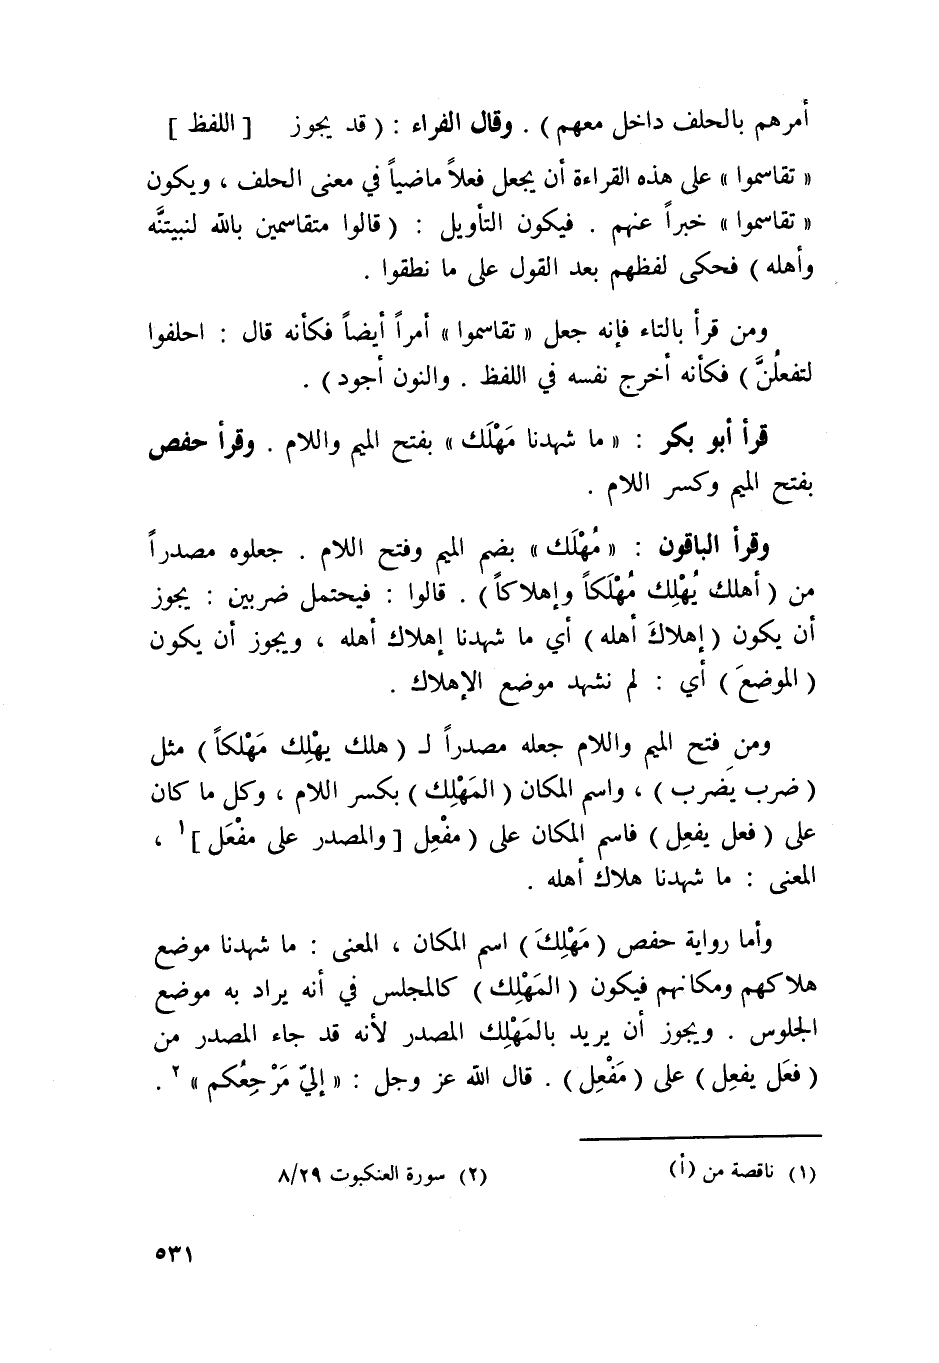 أمرهم بالحلف داخل معهم ) . وقال الفراء : ( قد يجوز [ اللفظ ]
« تقاسموا » على هذه القراءة أن يجعل فعلاً ماضياً في معنى الحلف ، ويكون
« تقاسموا » خبراً عنهم . فيكون التأويل : ( قالوا متقاسمين بالله لنبيتنَّه
وأهله ) فحكى لفظهم بعد القول على ما نطقوا .
ومن قرأ بالتاء فإنه جعل « تقاسموا » أمراً أيضاً فكأنه قال : احلفوا
لتفعلُنَّ ) فكأنه أخرج نفسه في اللفظ . والنون أجود ) .
قرأ أبو بكر : « ما شهدنا مَهْلَك » بفتح الميم واللام . وقرأ حفص
بفتح الميم وكسر اللام .
وقرأ الباقون : « مُهْلَك » بضم الميم وفتح اللام . جعلوه مصدراً
من ( أهلك يُهْلِك مُهْلَكاً وإهلاكاً ) . قالوا : فيحتمل ضربين : يجوز
أن يكون ( إهلاكَ أهله ) أي ما شهدنا إهلاك أهله ، ويجوز أن يكون
( الموضعَ ) أي : لم نشهد موضع الإهلاك .
ومن فتح الميم واللام جعله مصدراً لـ ( هلك يهْلِك مَهْلكاً ) مثل
( ضرب يضرب ) ، واسم المكان ( المَهْلِك ) بكسر اللام ، وكل ما كان
على ( فعل يفعِل ) فاسم المكان على ( مفْعِل [ والمصدر على مفْعَل ] ١ ،
المعنى : ما شهدنا هلاك أهله .
وأما رواية حفص ( مَهْلِكَ ) اسم المكان ، المعنى : ما شهدنا موضع
هلاكهم ومكانهم فيكون ( المَهْلِك ) كالمجلس في أنه يراد به موضع
الجلوس . ويجوز أن يريد بالمَهْلِك المصدر لأنه قد جاء المصدر من
( فعَل يفعِل ) على ( مَفْعِل ) . قال الله عز وجل : « إليّ مَرْجِعُكم » ٢ .
(١) ناقصة من (أ) (٢) سورة العنكبوت ٨/٢٩
٥٣١